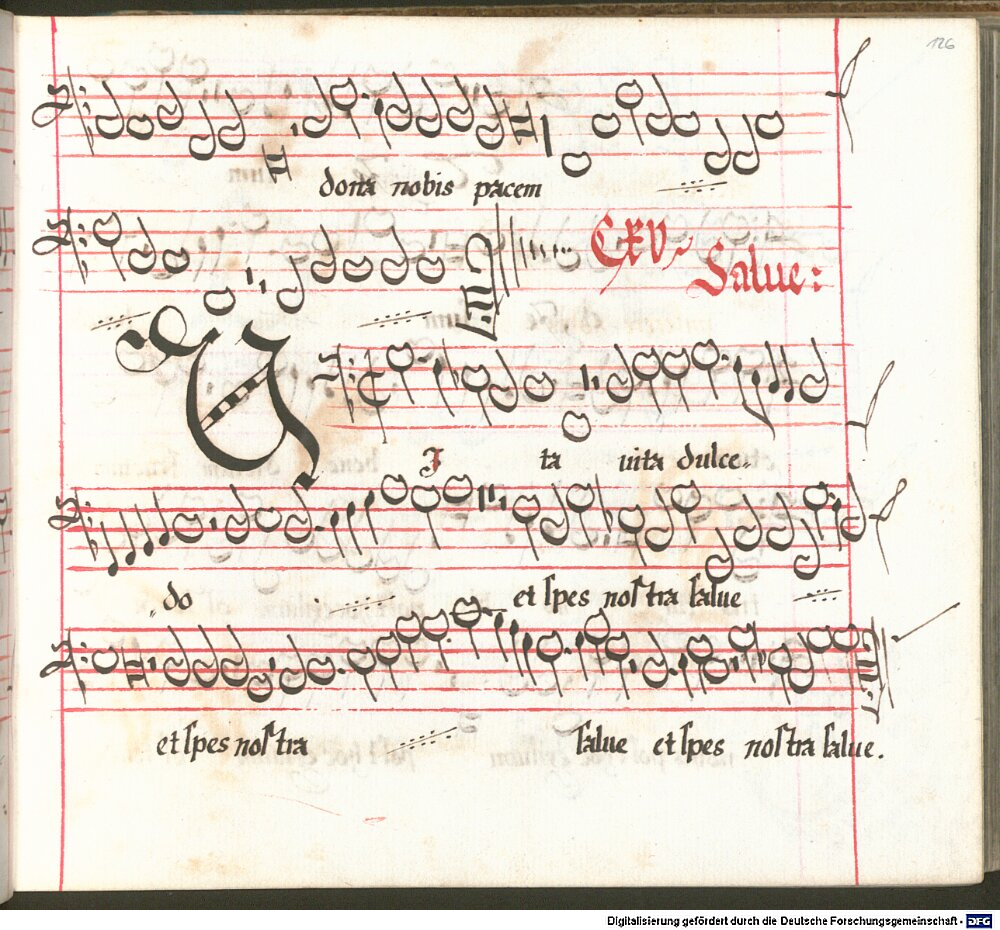 126
dona nobis pacem
CXV
Salue:
VI ta uita dulce
do et spes nostra salue
et spes nostra salue et spes nostra salue.
Digitalisierung gefördert durch die Deutsche Forschungsgemeinschaft - DFG